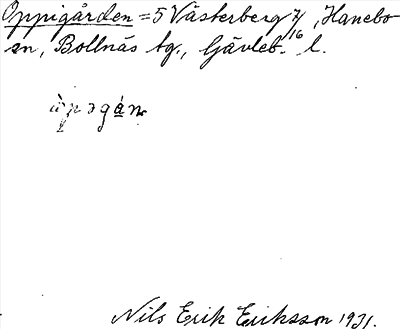 Oppigården = 5 Västerberg 7/16, Hanebo
sn, Bollnäs tg., Gävleb. l.
Nils Erik Eriksson 1931.